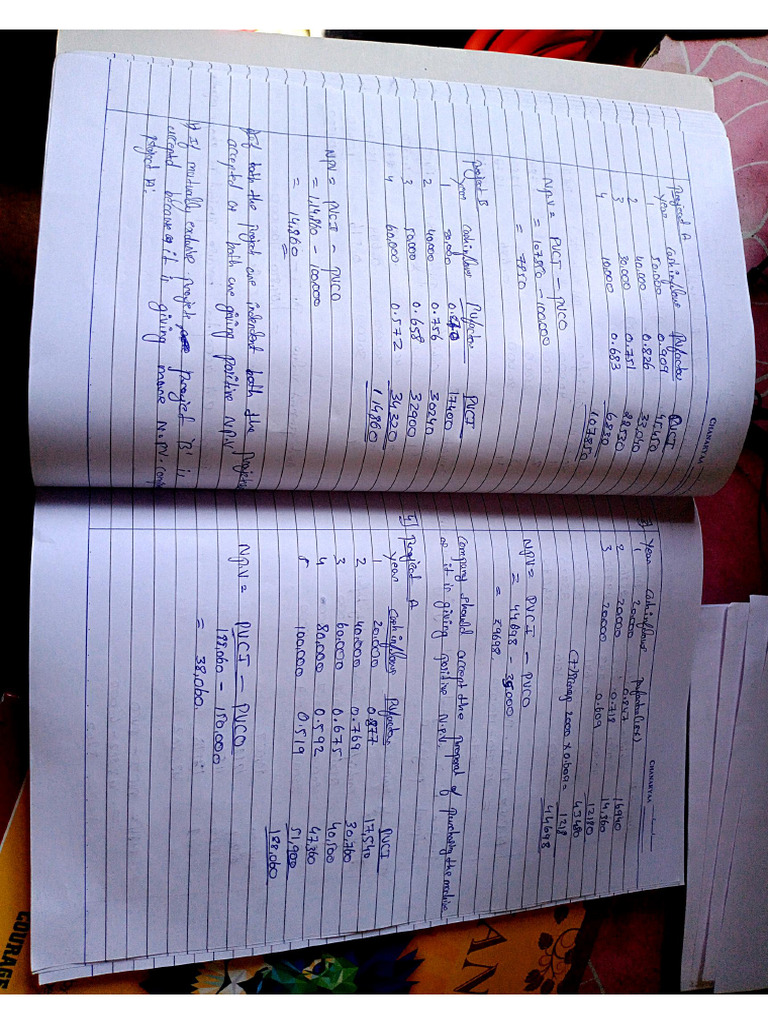 CHANAKYA
Project A
Year Cashinflows Pvfactor PVCI
1 50,000 0.909 45,450
2 40,000 0.826 33,040
3 30,000 0.751 22530
4 10,000 0.683 6830
107850
NPV = PVCI - PVCO
= 107850 - 100,000
= 7850
Project B
Year Cashinflows Pvfactor PVCI
1 20,000 0.870 17400
2 40,000 0.756 30240
3 50,000 0.658 32900
4 60,000 0.572 34320
114860
NPV = PVCI - PVCO
= 1,14,860 - 100,000
= 14,860
If both the project are indendent both the Projects
accepted as both are giving positive N.P.V
If mutually exclusive project project 'B' is
accepted because it is giving more N.P.V.
project A.
CHANAKYA
3) Year Cashinflows Pvfactor(15%)
1 20000 0.847 16940
2 20000 0.718 14,360
3 20000 0.609 12,180
43480
2000 x 0.609 = 1218
44698
NPV = PVCI - PVCO
= 44698 - 35000
= 9698.
Company should accept the proposal of purchasing the machine
as it is giving positive N.P.V.
4) Project A
Year Cashinflows Pvfactor PVCI
1 20,000 0.877 17,540
2 40,000 0.769 30,760
3 60,000 0.675 40,500
4 80,000 0.592 47,360
5 100,000 0.519 51,900
188,060
NPV = PVCI - PVCO
188,060 - 150,000
= 38,060.
COURAGE
AN